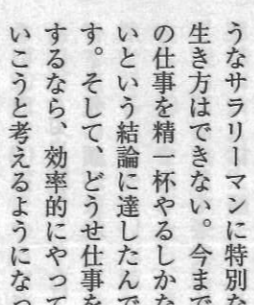 うなサラリーマンに特別な
生き方はできない。今まで
の仕事を精一杯やるしかな
いという結論に達したんで
す。そして、どうせ仕事を
するなら、効率的にやって
いこうと考えるようになっ